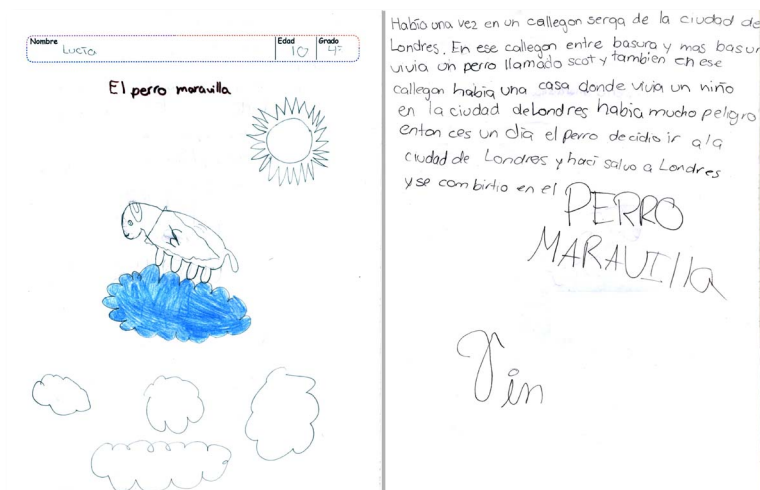 Nombre Lucía Edad 10 Grado 4º
El perro maravilla
Había una vez en un callegon serqa de la ciudad de
Londres. En ese callegon entre basura y mas basur
vivia un perro llamado scot y tambien en ese
callegon habia una casa donde vivia un niño
en la ciudad de Londres habia mucho peligro
enton ces un dia el perro decidio ir a la
ciudad de Londres y haci salvo a Londres
y se combirtio en el PERRO
MARAVIlla
Fin